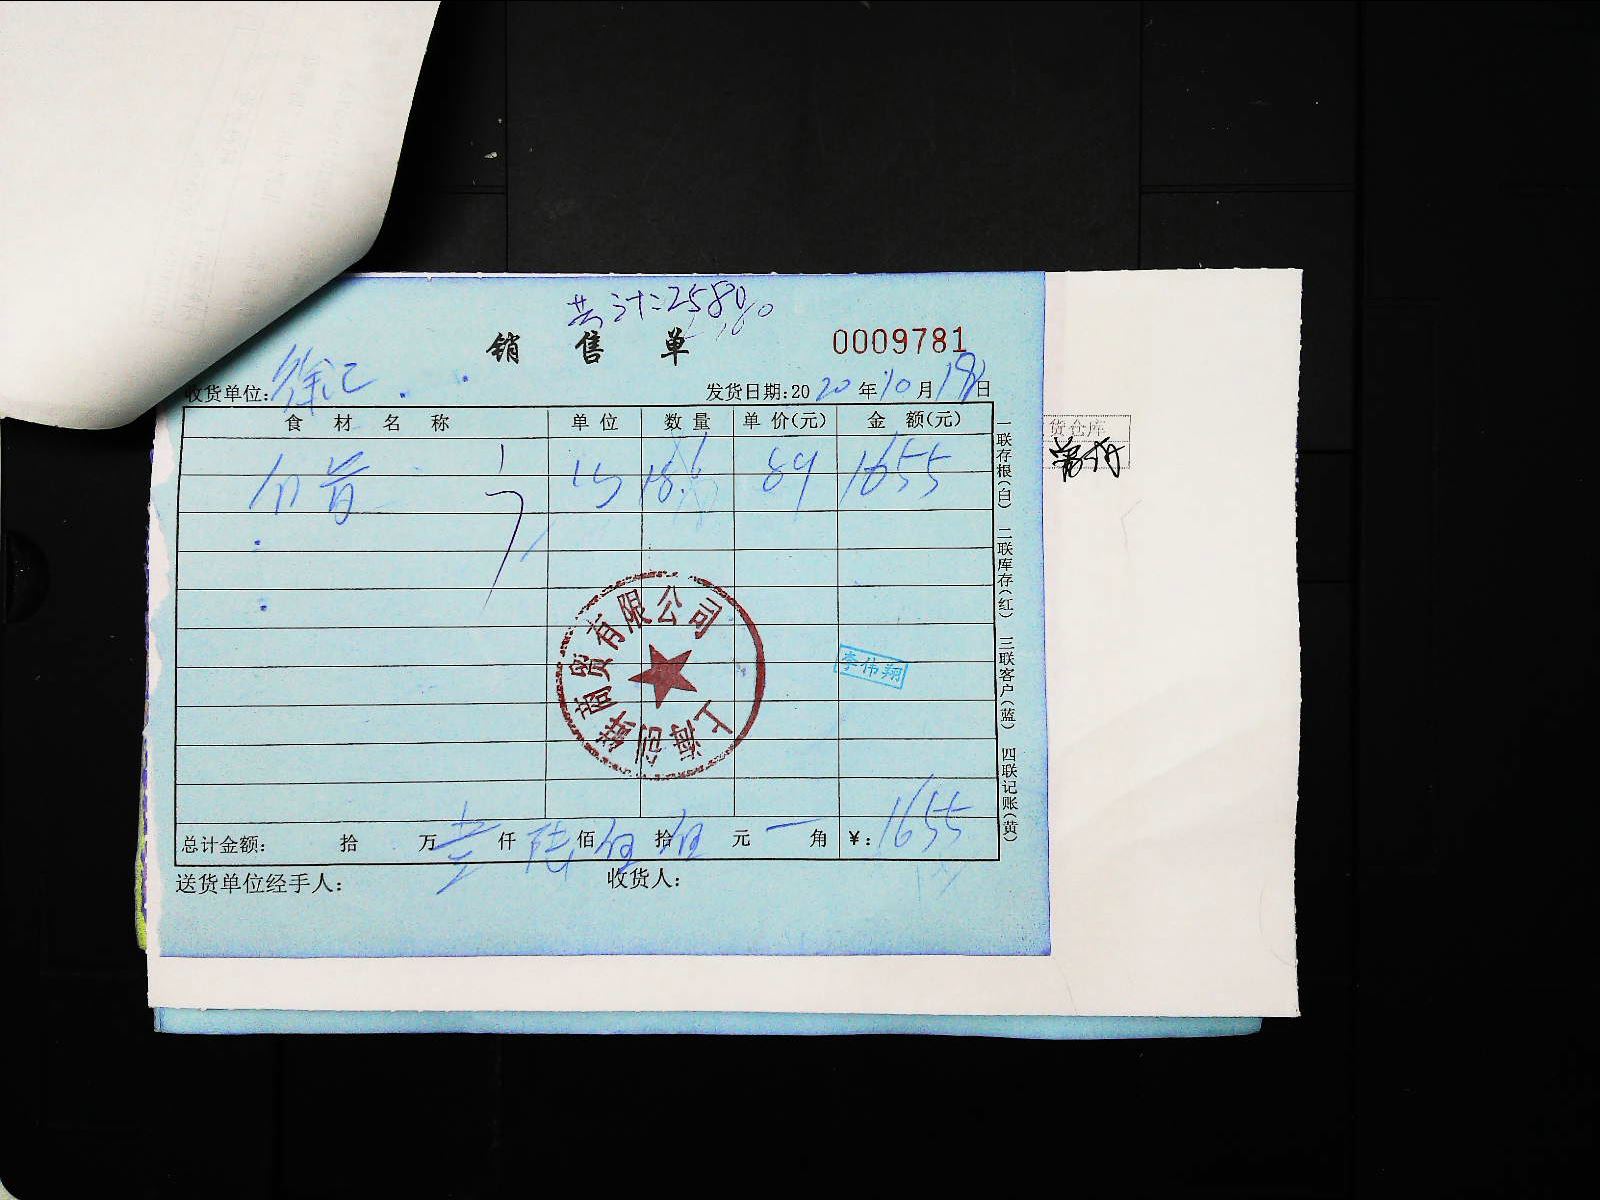 共计:2580
销 售 单 0009781
收货单位:徐记 发货日期:2020年10月19日
食 材 名 称 单 位 数 量 单 价(元) 金 额(元)
18.6 89 1655
上海 商贸有限公司
李伟翔
总计金额: 拾 万 壹 仟 陆 佰 伍 拾 伍 元 一 角 ¥:1655
送货单位经手人: 收货人:
一联存根(白) 二联库存(红) 三联客户(蓝) 四联记账(黄)
货仓库